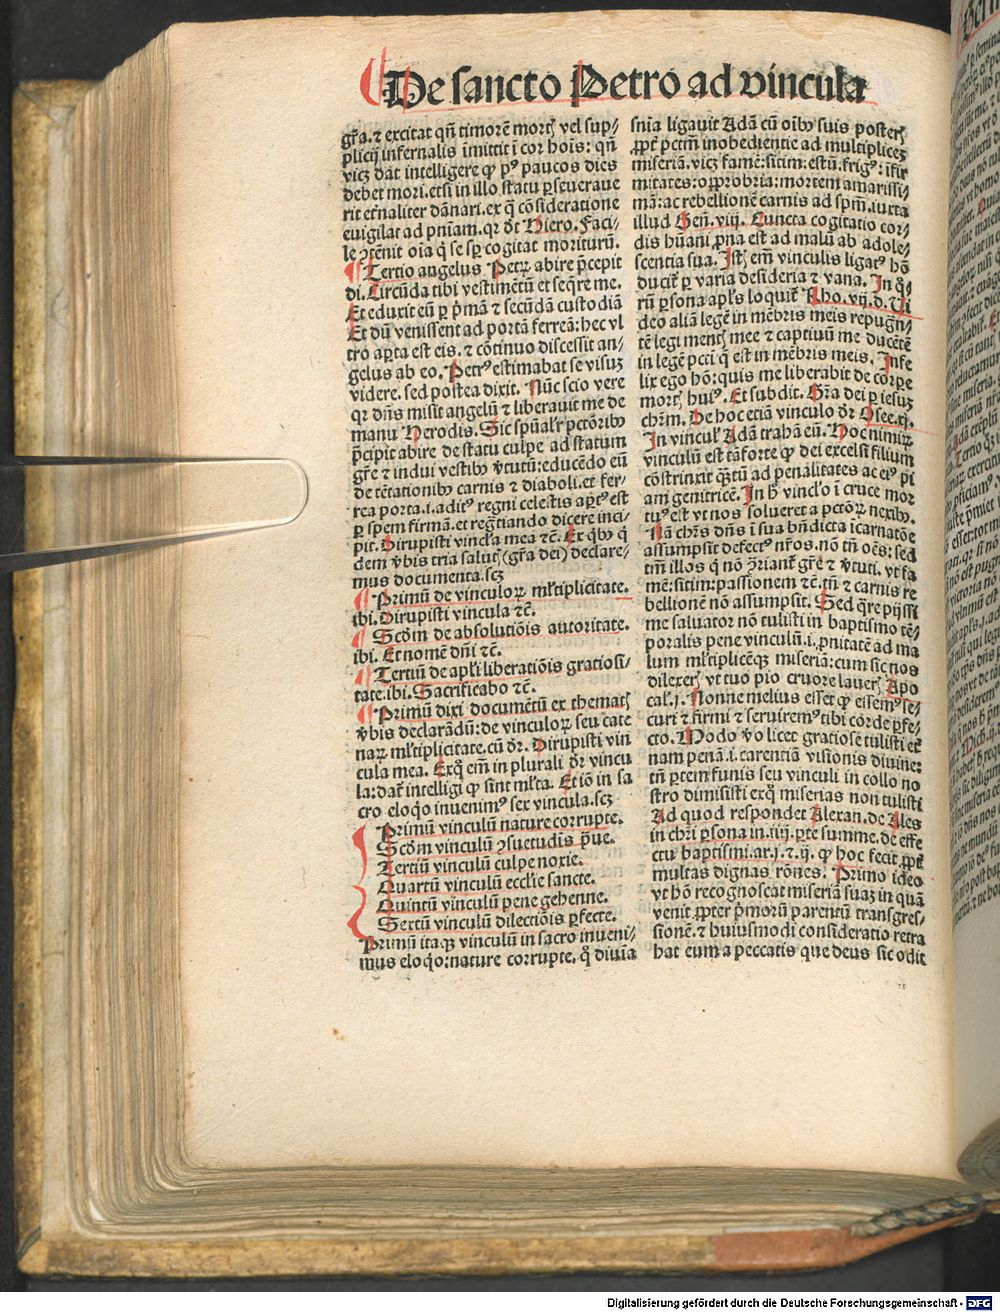 De sancto Petro ad vincula
gr̄a. ⁊ excitat qn̄ timorē mortꝭ vel sup-
plicij infernalis īmittit ī cor hoīs: qn̄
vicꝫ dat intelligere ꝙ pꝰ paucos dies
debet mori. etsi in illo statu ꝑseueraue
rit et̄naliter dānari. ex q̄ cōsideratione
euigilat ad pn̄iam. qr dt̄ Hiero. Faci-
le ꝯtēnit oīa q̇ se sꝑ cogitat moriturū.
Tertio angelus Petrꝝ abire p̄cepit
di. Circūda tibi vestimētū et seq̄re me.
Et eduxit eū ꝑ p̄mā ⁊ secūdā custodiā
Et dū venissent ad portā ferreā: hec vl
tro aꝑta est eis. ⁊ cōtinuo discessit an-
gelus ab eo. Petrꝰ estimabat se visuꝫ
videre. sed postea dixit. Nūc scio vere
qr dn̄s misit angelū ⁊ liberauit me de
manu Herodis. Sic spūalr̄ pctōribꝰ
p̄cipit abire de statu culpe ad statum
gr̄e ⁊ indui vestibꝰ v̄tutū: educēdo eū
de tētationibꝰ carnis ⁊ diaboli. et fer-
rea porta .i. aditꝰ regni celestis aꝑtꝰ est
ꝑ spem firmā. et regr̄tiando dicere inci-
pit. Dirupisti vincl̄a mea ⁊c̄. Ex qͥbꝰ q̇
dem v̄bis tria salutꝭ (gr̄a dei) declare-
mus documenta. scꝫ
Primū de vinculoꝝ ml̄tiplicitate.
ibi. Dirupisti vincula ⁊c̄.
Scd̄m de absolutiōis autoritate.
ibi. Et nomē dn̄i ⁊c̄.
Tertiū de apl̄i liberatiōis gratiosi-
tate. ibi. Sacrificabo ⁊c̄.
Primū dixi documētū ex thematꝭ
v̄bis declarādū: de vinculoꝝ seu cate
naꝝ ml̄tiplicitate. cū dr̄. Dirupisti vin
cula mea. Exq̇ em̄ in plurali dr̄ vincu
la: dat̄ intelligi ꝙ sint ml̄ta. Et iō in sa
cro eloq̇o inuenimꝰ sex vincula. scꝫ
Primū vinculū nature corrupte.
Scd̄m vinculū ꝯsuetudis p̄ue.
Tertiū vinculū culpe noxie.
Quartū vinculū eccl̄ie sancte.
Quintū vinculū pene gehenne.
Sextū vinculū dilectiōis ꝑfecte.
Primū itaqꝫ vinculū in sacro inueni-
mus eloq̇o: nature corrupte. q̊ diuīa
sn̄ia ligauit Adā cū oībꝰ suis posterꝭ
ꝓpt̄ pctm̄ inobedientie ad multiplicēꝫ
miseriā. vicꝫ famē: sitim: estū: frigꝰ: īfir
mitates: opprobria: mortem amarissi-
mā: ac rebellionē carnis ad spm̄. iuxta
illud Gen̄. viij. Cuncta cogitatio cor-
dis hūani ꝓna est ad malū ab adole-
scentia sua. Istꝭ em̄ vinculis ligatꝰ hō
ducit̄ ꝑ varia desideria ⁊ vana. In q̊-
rū ꝑsona apl̄s loquit̄ Rho. vij. d. Ui
deo aliā legē in mēbris meis repugn̄-
tē legi mentꝭ mee ⁊ captiuū me ducētē
in legē pcc̄i q̄ est in mēbris meis. Infe
lix ego hō: quis me liberabit de corꝑe
mortꝭ huiꝰ. Et subdit. Gr̄a dei ꝑ iesuꝫ
chr̄m. De hoc etiā vinculo dr̄ Osee. xj.
In vincul̄ Adā trahā eū. Hoc nimiꝝ
vinculū est tā forte ꝙ dei excelsi filium
cōstrinxit q̄ȝtū ad penalitates ac eiꝰ pi
am genitricē. In hͦ vincl̄o ī cruce mor
tuꝰ est vt nos solueret a pctōꝝ nexibꝰ.
Nā chr̄s dn̄s ī sua bn̄dicta īcarnatōe
assumpsit defectꝰ nr̄os. nō tn̄ oēs: sed
tm̄ illos q̇ nō ꝯ̄riant̄ gr̄e ⁊ v̄tuti. vt fa
mē: sitim: passionem ⁊c̄. tn̄ ⁊ carnis re
bellionē nō assumpsit. Sed q̄re pijssi
me saluator nō tulisti in baptismo tē-
poralis pene vinculū .i. pnitatē ad ma
lum ml̄tiplicēqꝫ miseriā: cum sic nos
dilexerꝭ vt tuo pio cruore lauerꝭ Apo
cal̄. j. Nonne melius esset ꝙ essemꝰ se-
curi ⁊ firmi ⁊ seruiremꝰ tibi corde ꝑfe-
cto. Modo v̄o licet gratiose tulisti et̄
nam penā .i. carentiā visionis diuine:
tn̄ ꝑtem funis seu vinculi in collo no
stro dimisisti exq̇ miserias non tulisti
Ad quod respondet Alexan. de Ales
in chr̄i ꝑsona in .iiij. ꝑte summe. de effe
ctu baptismi. ar. j. ⁊ .ij. ꝙ hoc fecit ꝓpt̄
multas dignas rōnes. Primo ideo
vt hō recognoscat miseriā suaꝫ in quā
venit ꝓpter p̄morū parentū transgres-
sionē. ⁊ huiusmodi consideratio retra
hat eum a peccatis que deus sic odit
Digitalisierung gefördert durch die Deutsche Forschungsgemeinschaft - DFG